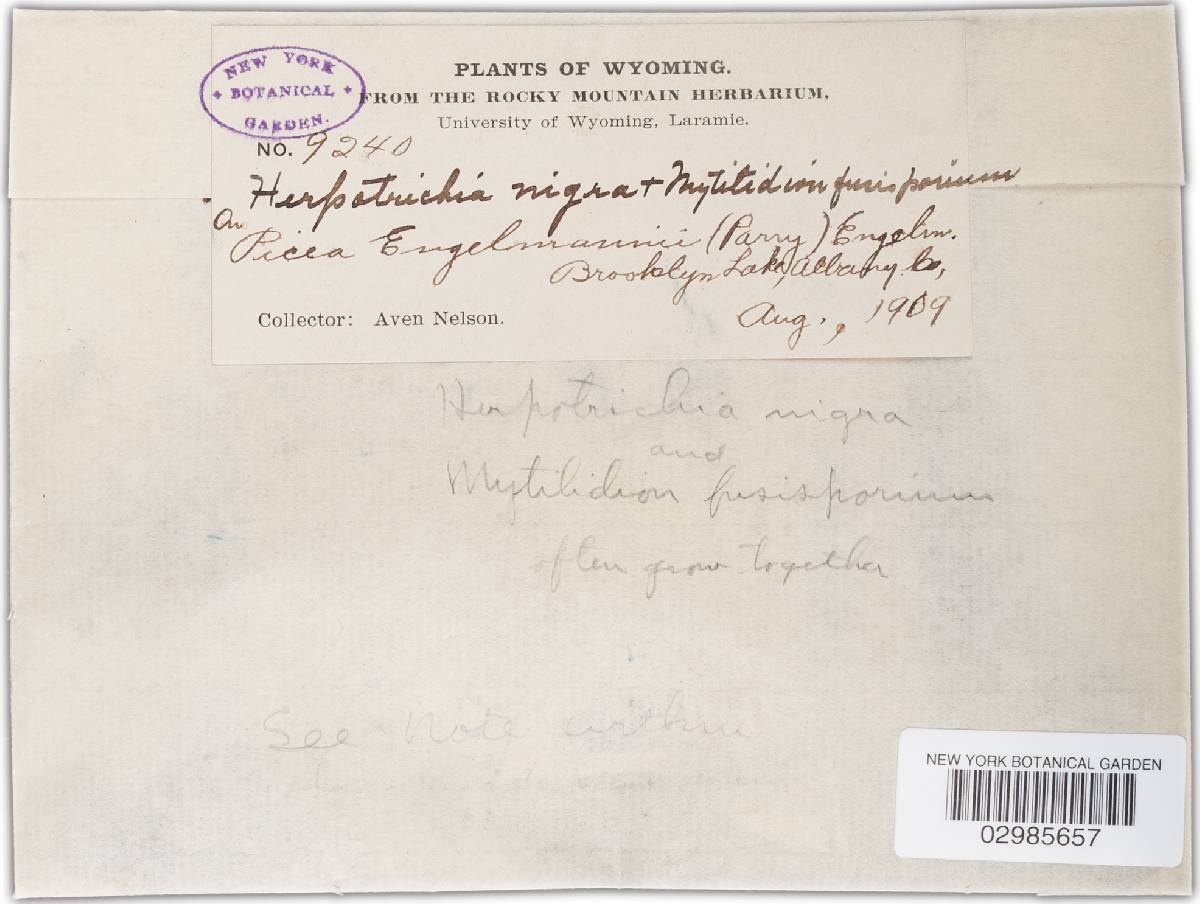 NEW YORK
BOTANICAL
GARDEN.
PLANTS OF WYOMING.
FROM THE ROCKY MOUNTAIN HERBARIUM,
University of Wyoming, Laramie.
NO. 9240
Herpotrichia nigra + Mytitidion fusisporium
On
Picea Engelmannii (Parry) Engelm.
Brooklyn Lake, Albany Co,
Collector: Aven Nelson.
Aug., 1909
Herpotrichia nigra
and
Mytilidion fusisporium
often grow together
See Note within
NEW YORK BOTANICAL GARDEN
02985657